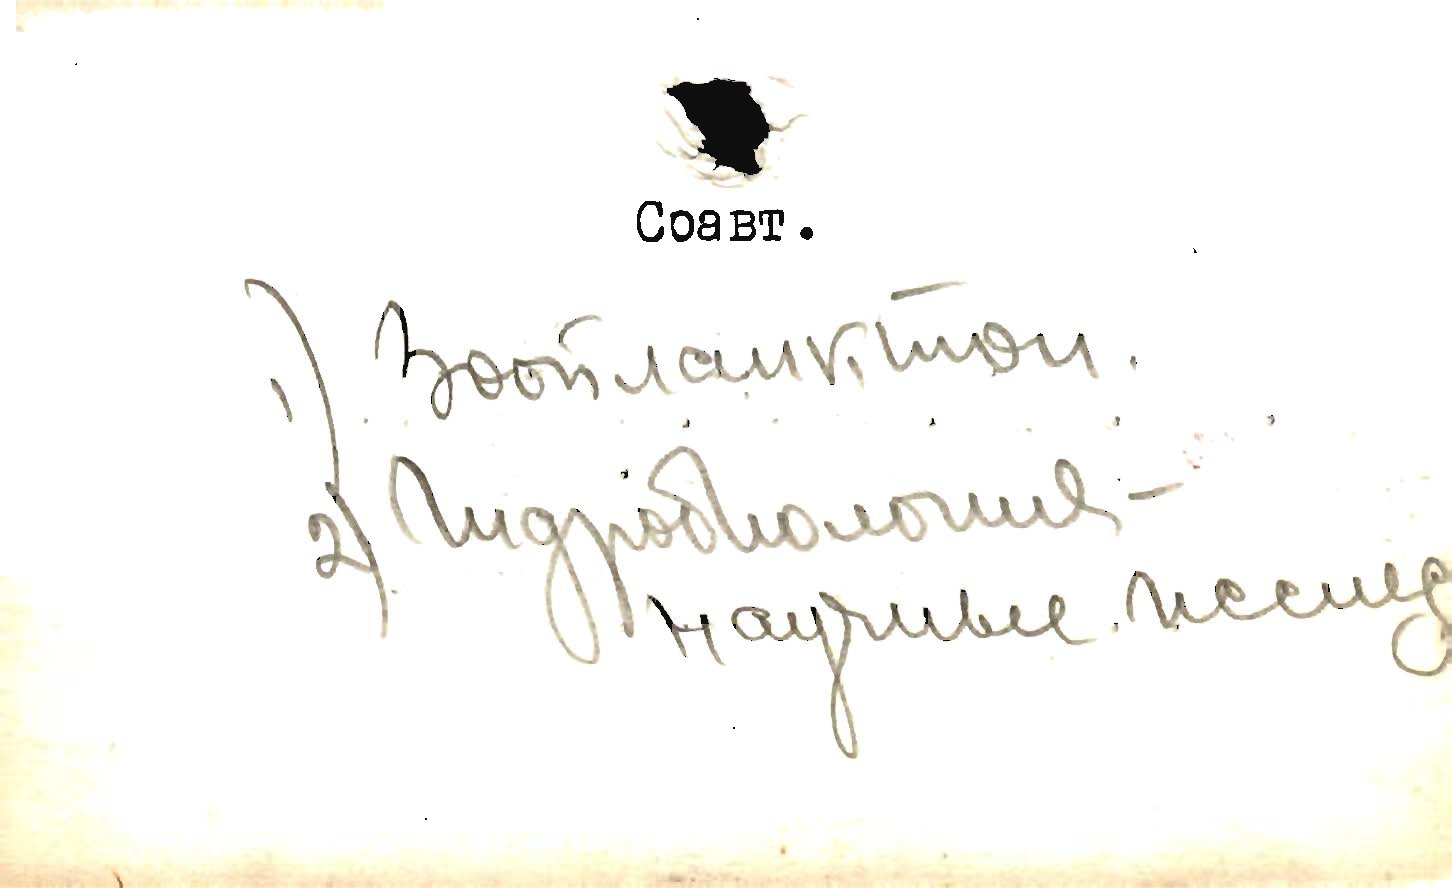 Соавт.
1) Зоопланктон.
2) Гидробиология -
научные исслед